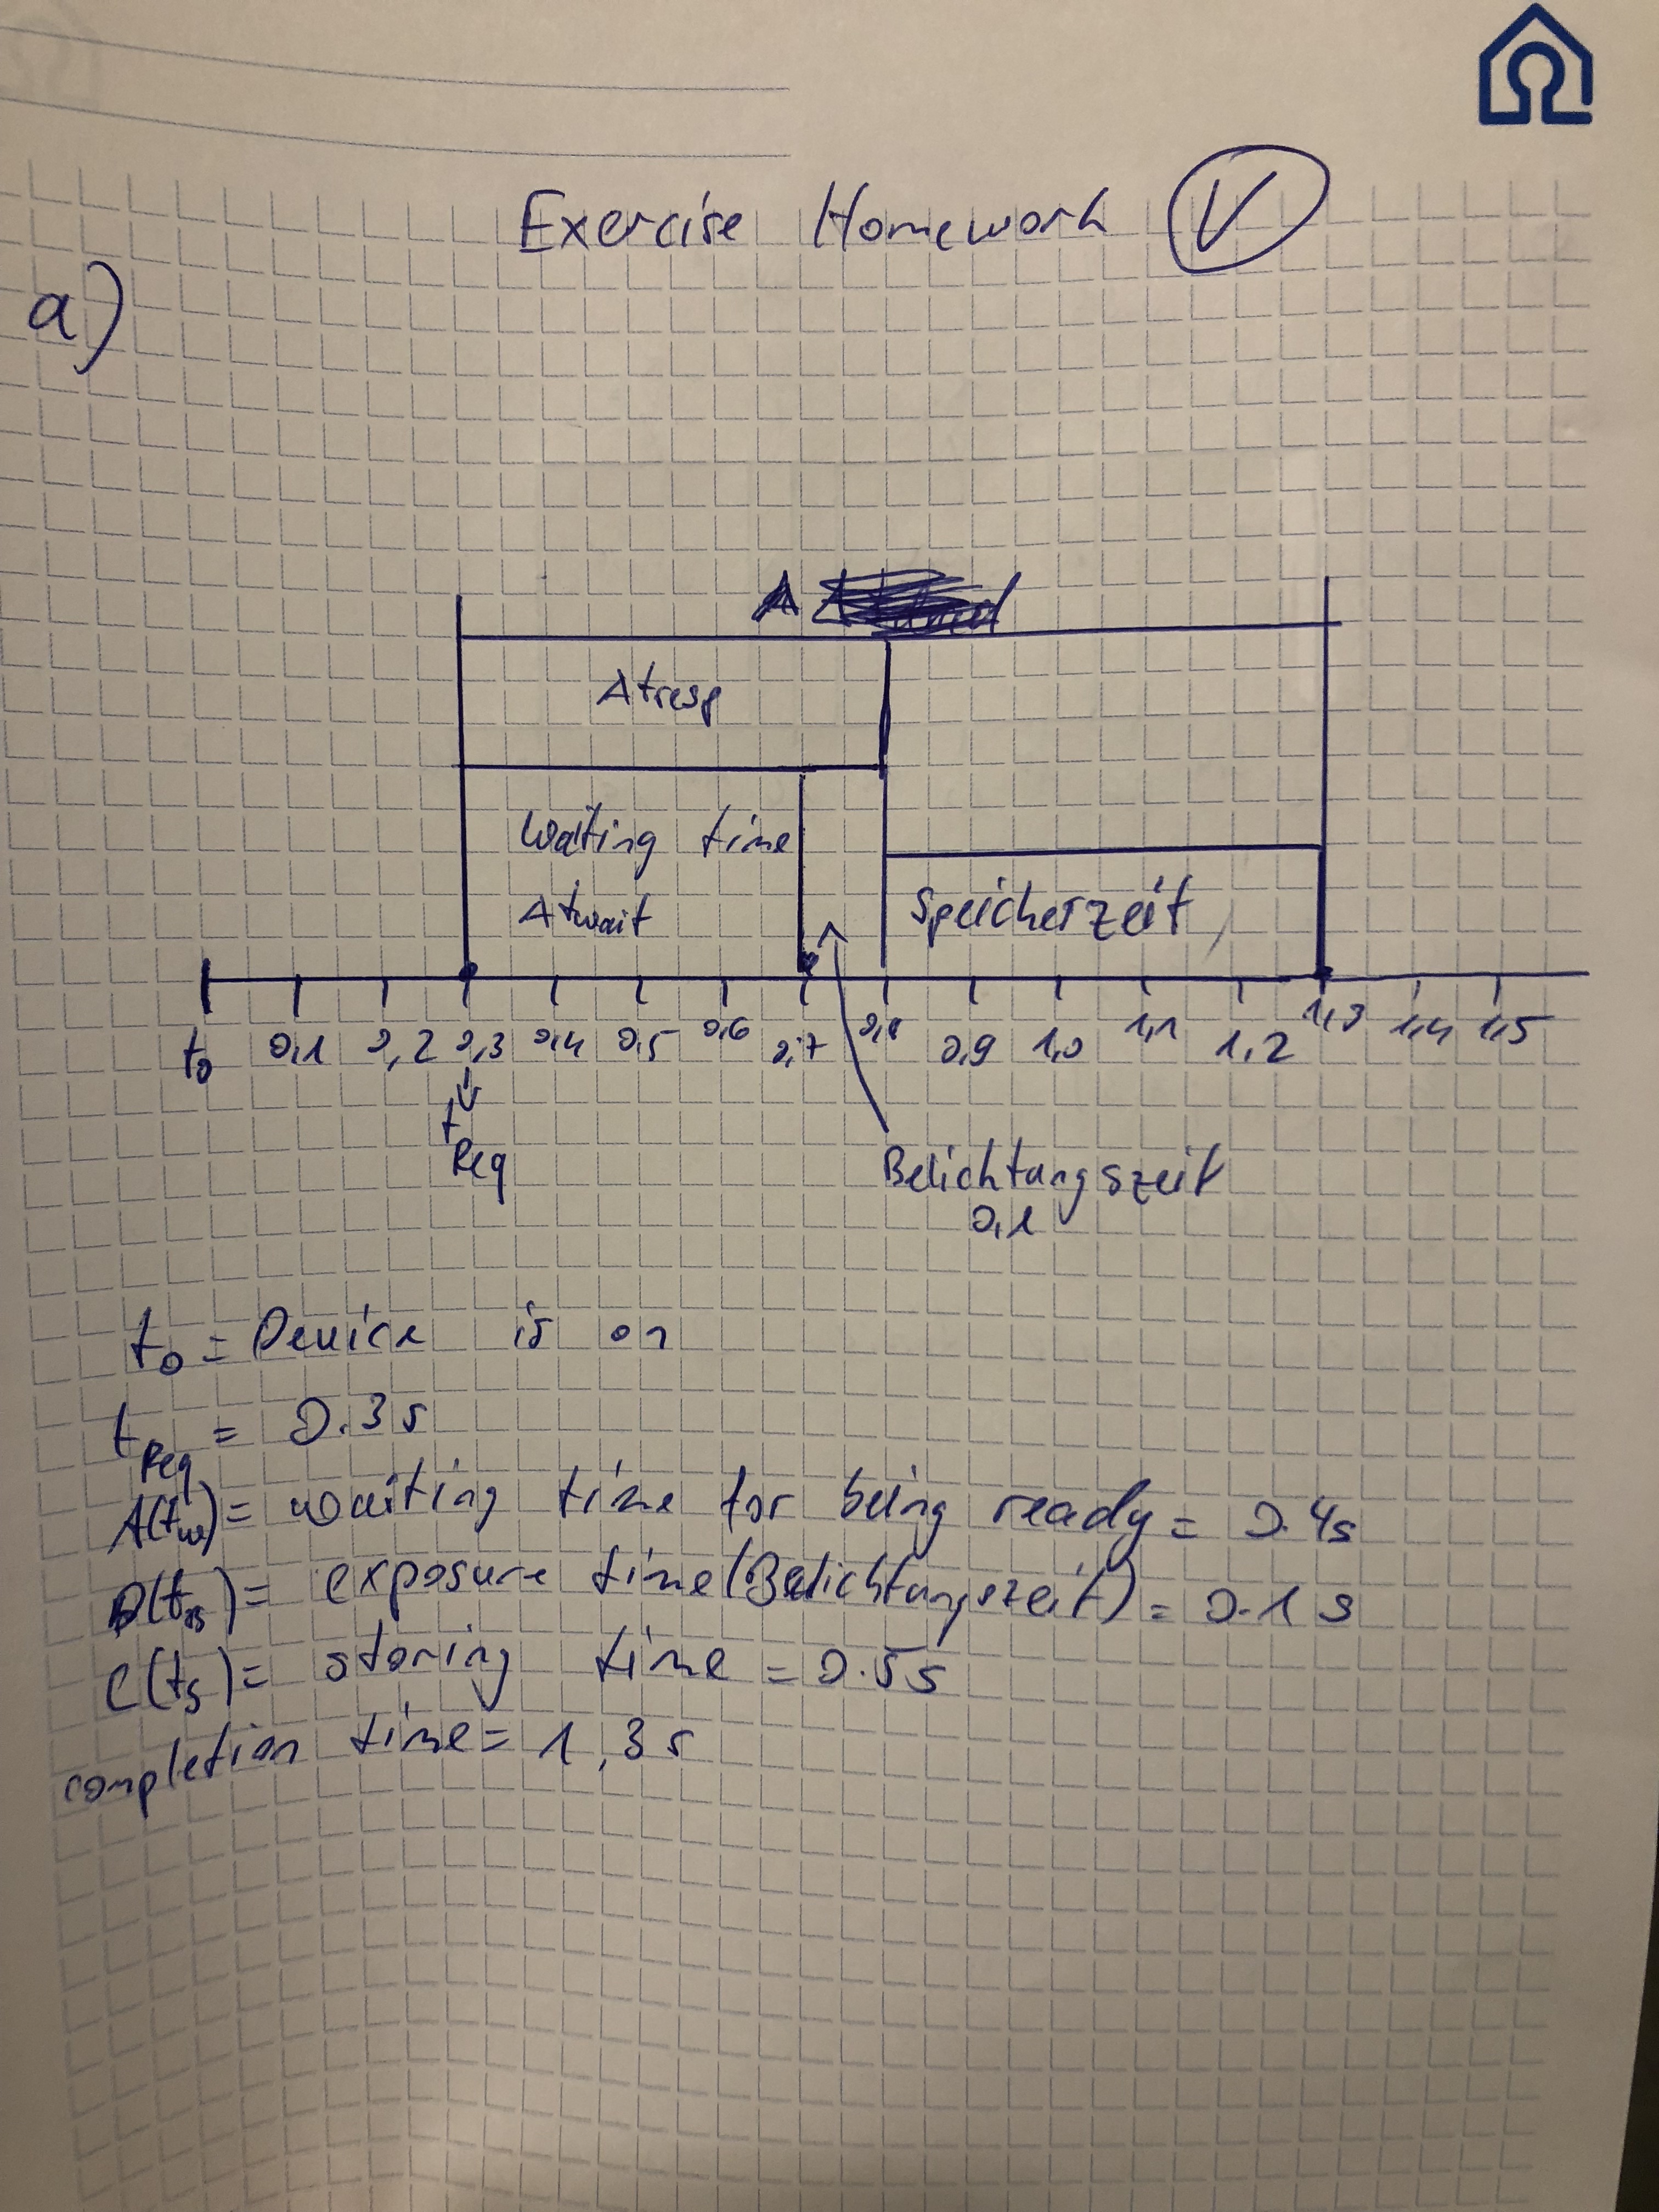 Exercise Homework V
a)
Δ
Δtresp
Waiting time
Δtwait
Speicherzeit
t0 0,1 0,2 0,3 0,4 0,5 0,6 0,7 0,8 0,9 1,0 1,1 1,2 1,3 1,4 1,5
tReq
Belichtungszeit
0,1
t0 = Device is on
tReq = 0.3s
Δ(tw) = waiting time for being ready = 0.4s
exposure time (Belichtungszeit) = 0.1 s
C(ts) = storing time = 0.5s
completion time = 1,3s